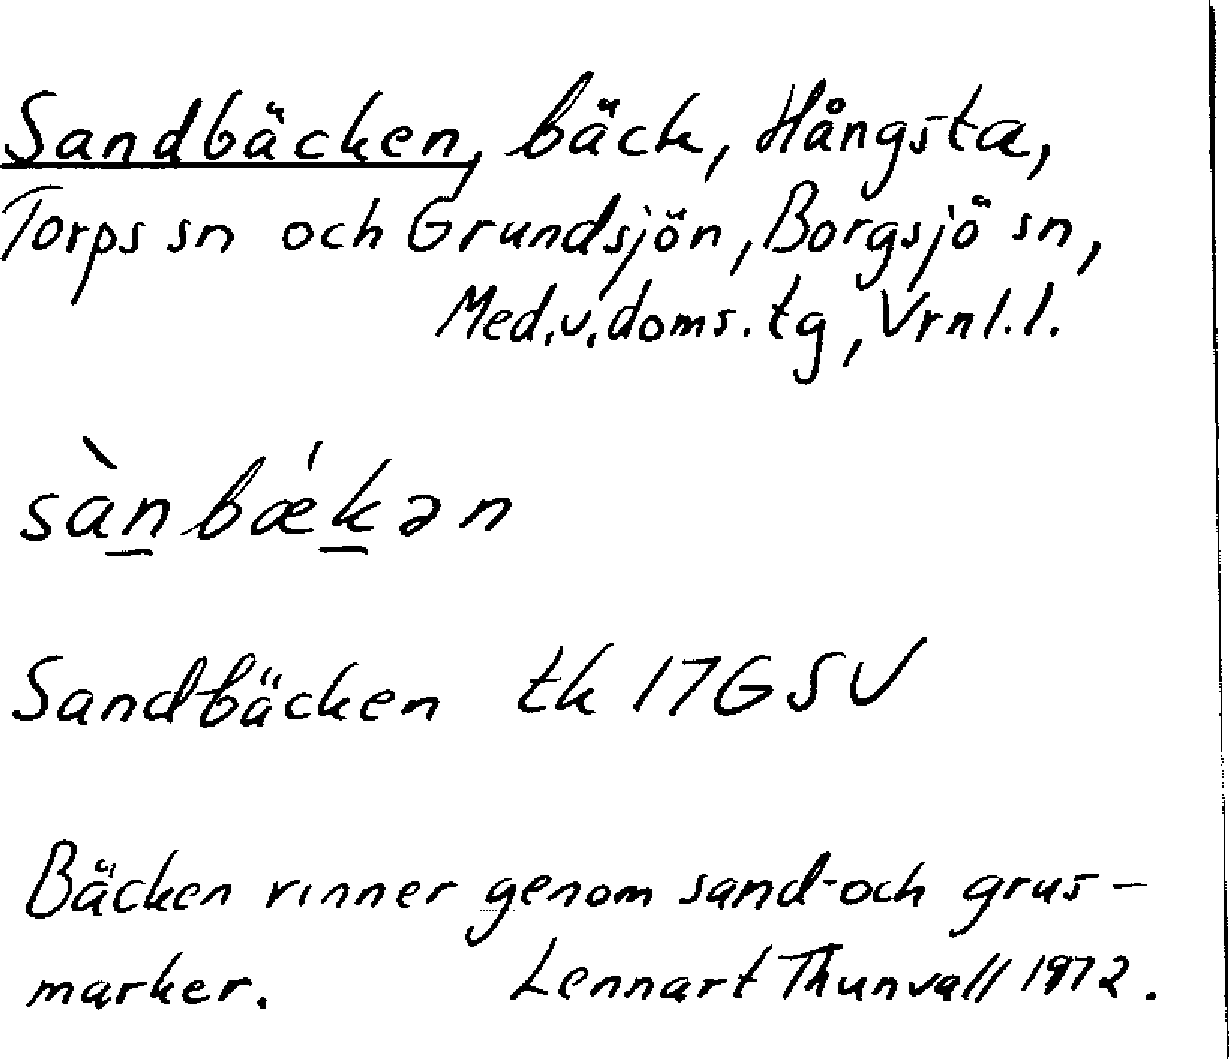 Sandbäcken, bäck, Hångsta,
Torps sn och Grundsjön, Borgsjö sn,
Med.v.doms.tg, Vrnl.l.
sàn̲bǽk̲ən
Sandbäcken tk 17G SV
Bäcken rinner genom sand- och grus-
marker. Lennart Thunvall 1972.